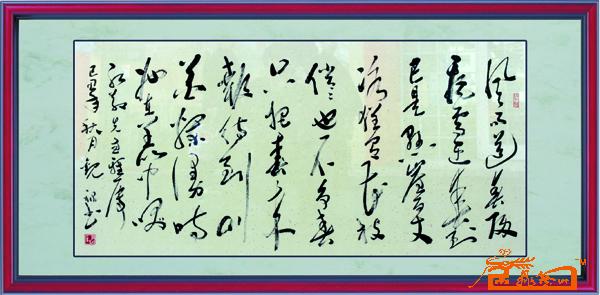 风雨送春归
飞雪迎春到
已是悬崖百丈
冰犹有花枝
俏俏也不争春
只把春来
报待到山
花烂漫时
她在丛中笑
秋月